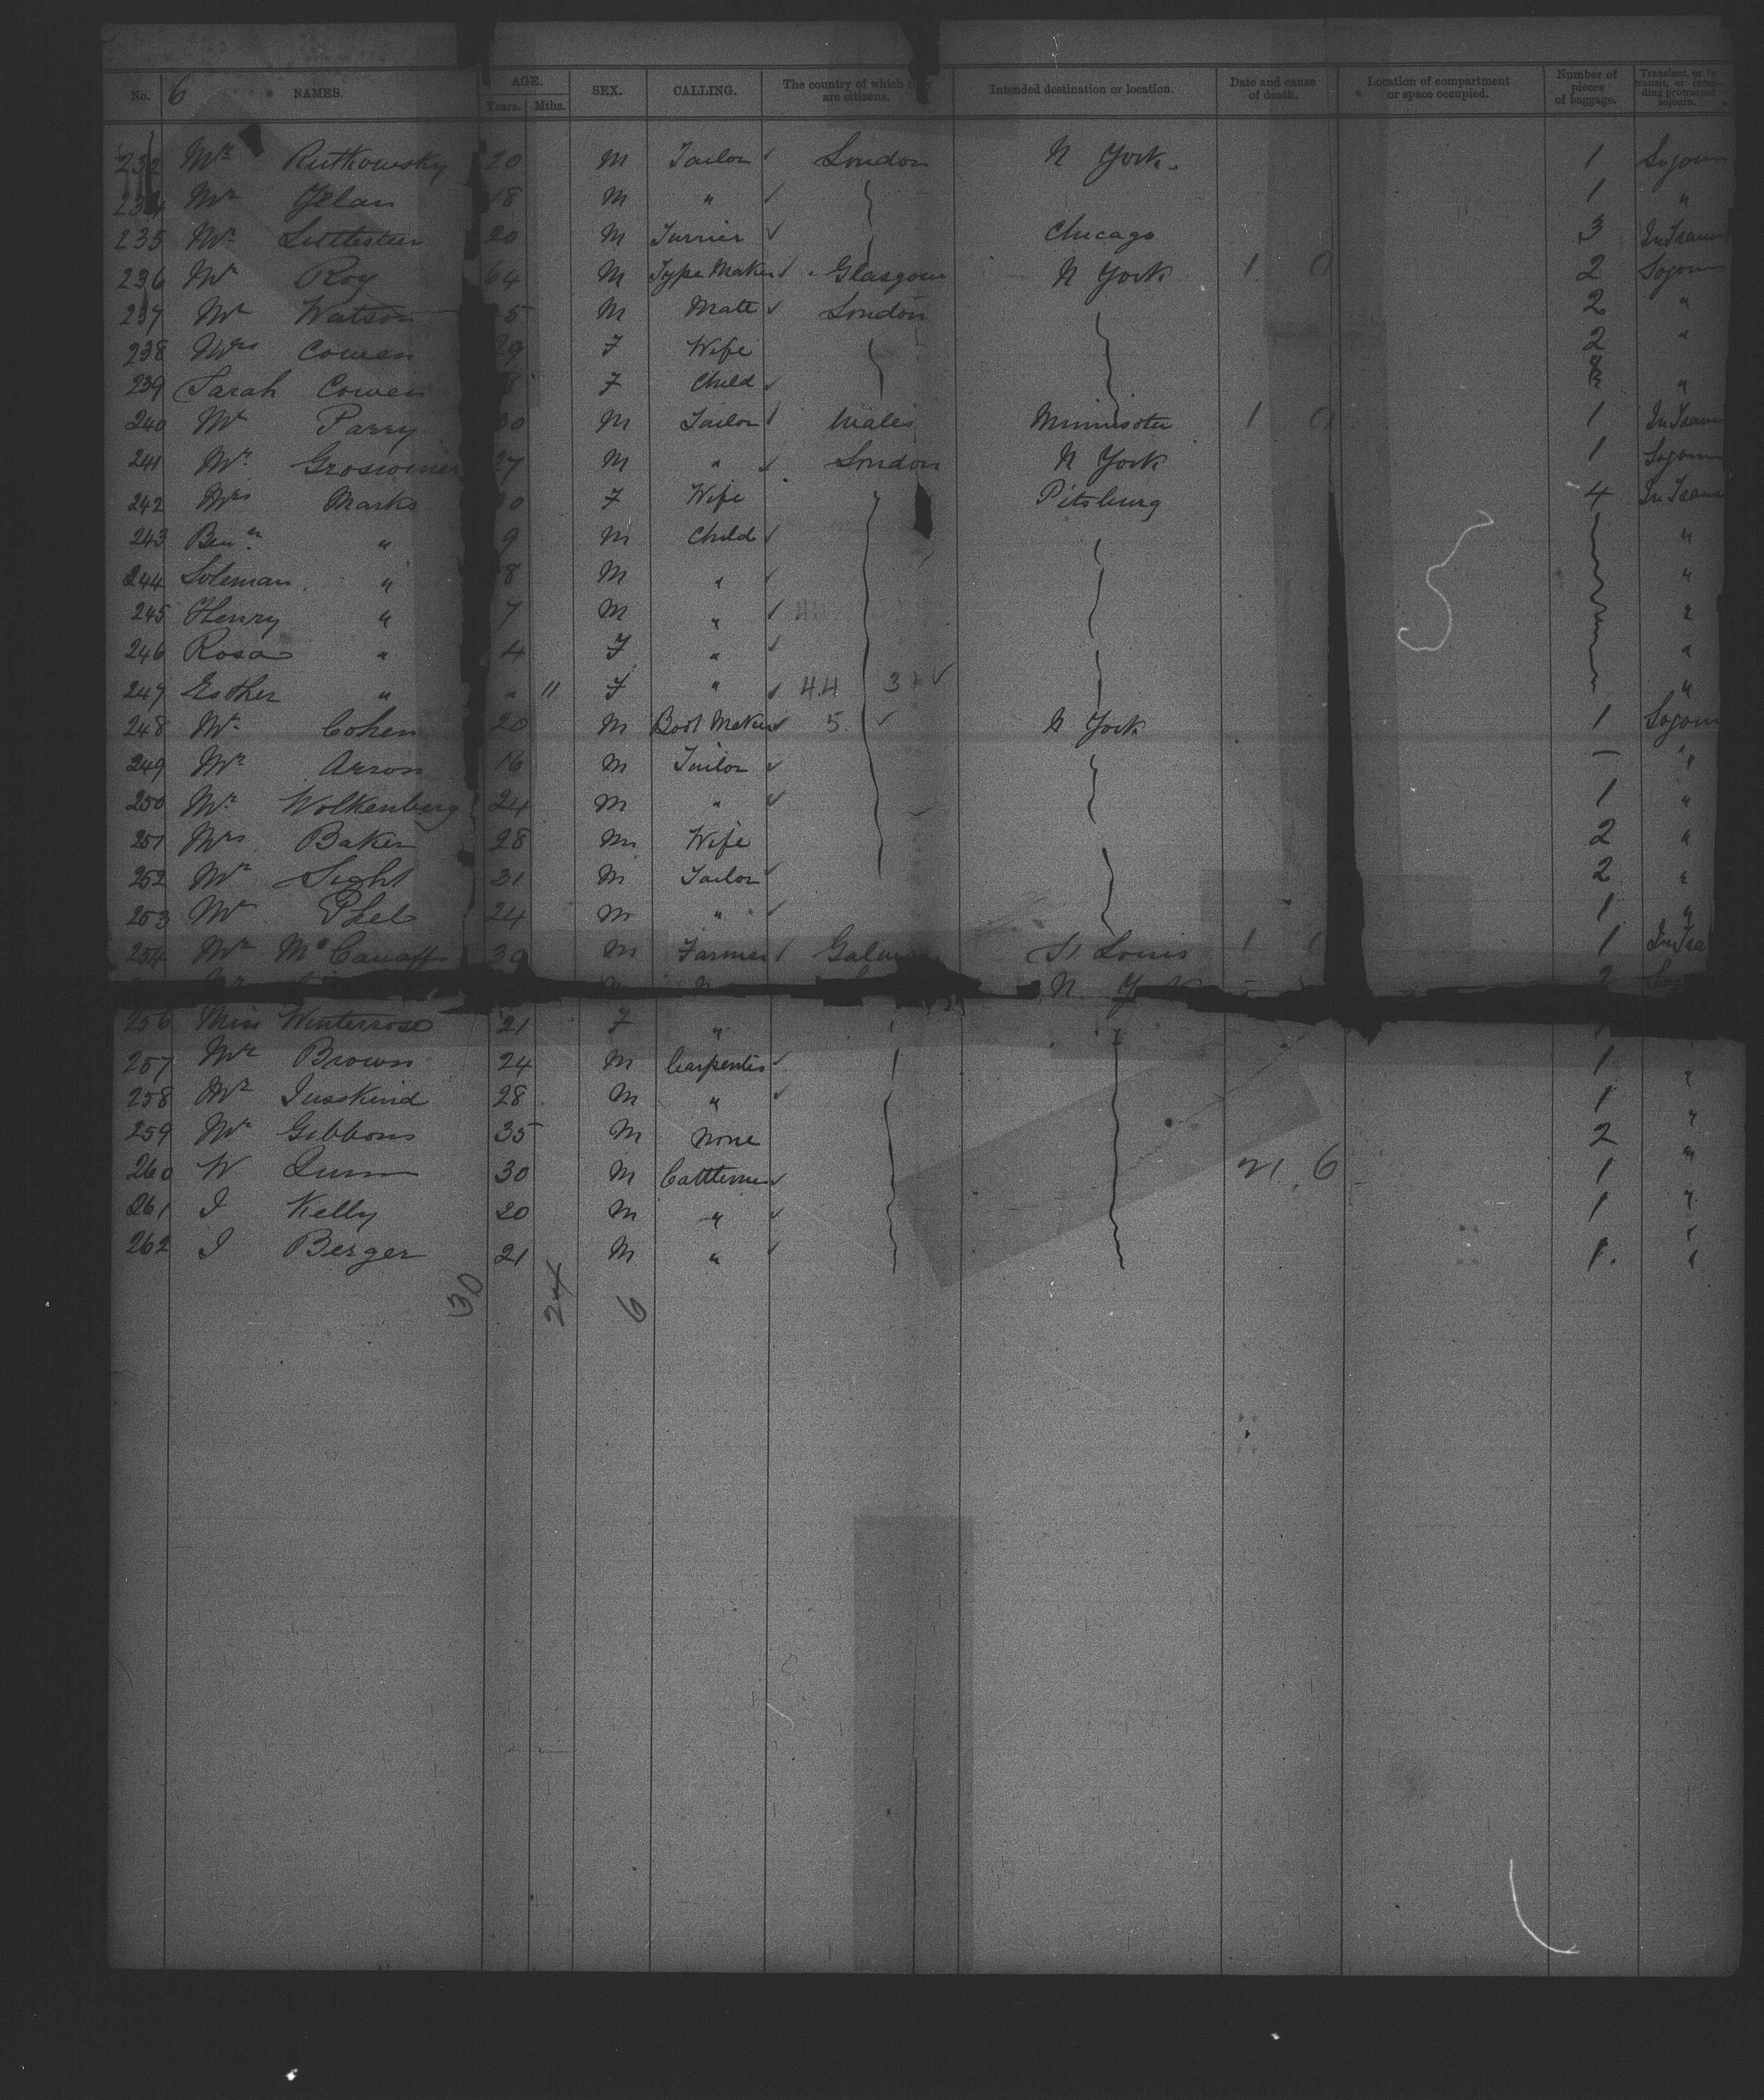 No. 6 NAMES. AGE. Years. Mths. SEX. CALLING. The country of which they are citizens. Intended destination or location. Date and cause of death. Location of compartment or space occupied. Number of pieces of baggage. Transient, or in transit, or intending protracted sojourn.
232 Mr Rutkowsky 20 M Tailor London N York. 1 Sojourn
234 Mr 18 M " 1 "
235 Mr 20 M Furrier Chicago 3
236 Mr Roy 64 M Type Maker Glasgow N York 1 0 2 Sojourn
237 Mr Watson M London 2 "
238 Mrs Cowen 29 F Wife 2 "
239 Sarah Cowen 8 F Child "
240 Mr Parry 30 M Tailor Wales Minnisota 1 0 1
241 Mr 27 M " London N York 1 Sojourn
242 Mrs Marks 30 F Wife Pitsburg 4
243 Benn " 9 M Child "
244 Soloman " 8 M " "
245 Henry " 7 M " 44 "
246 Rosa " 4 F " "
247 Esther " " 11 F " 44 3 "
248 Mr Cohen 20 M Boot Maker 5 N York 1 Sojourn
249 Mr Arron 16 M Tailor — "
250 Mr Wolkenberg 24 M " 1 "
251 Mrs Baker 28 M Wife 2 "
252 Mr Sight 31 M Tailor 2 "
253 Mr Phel 24 M " 1 "
254 Mr 39 M Farmer St Louis 1 1
N. York 2
256 Miss Winterrose 21 F "
257 Mr Brown 24 M Carpenter 1 "
258 Mr Susskind 28 M " 1 "
259 Mr Gibbons 35 M None 2 "
260 W Quinn 30 M Cattleman 21. 6 1 "
261 J Kelly 20 M " 1 "
262 J Berger 21 M " 1. "
30 24 6